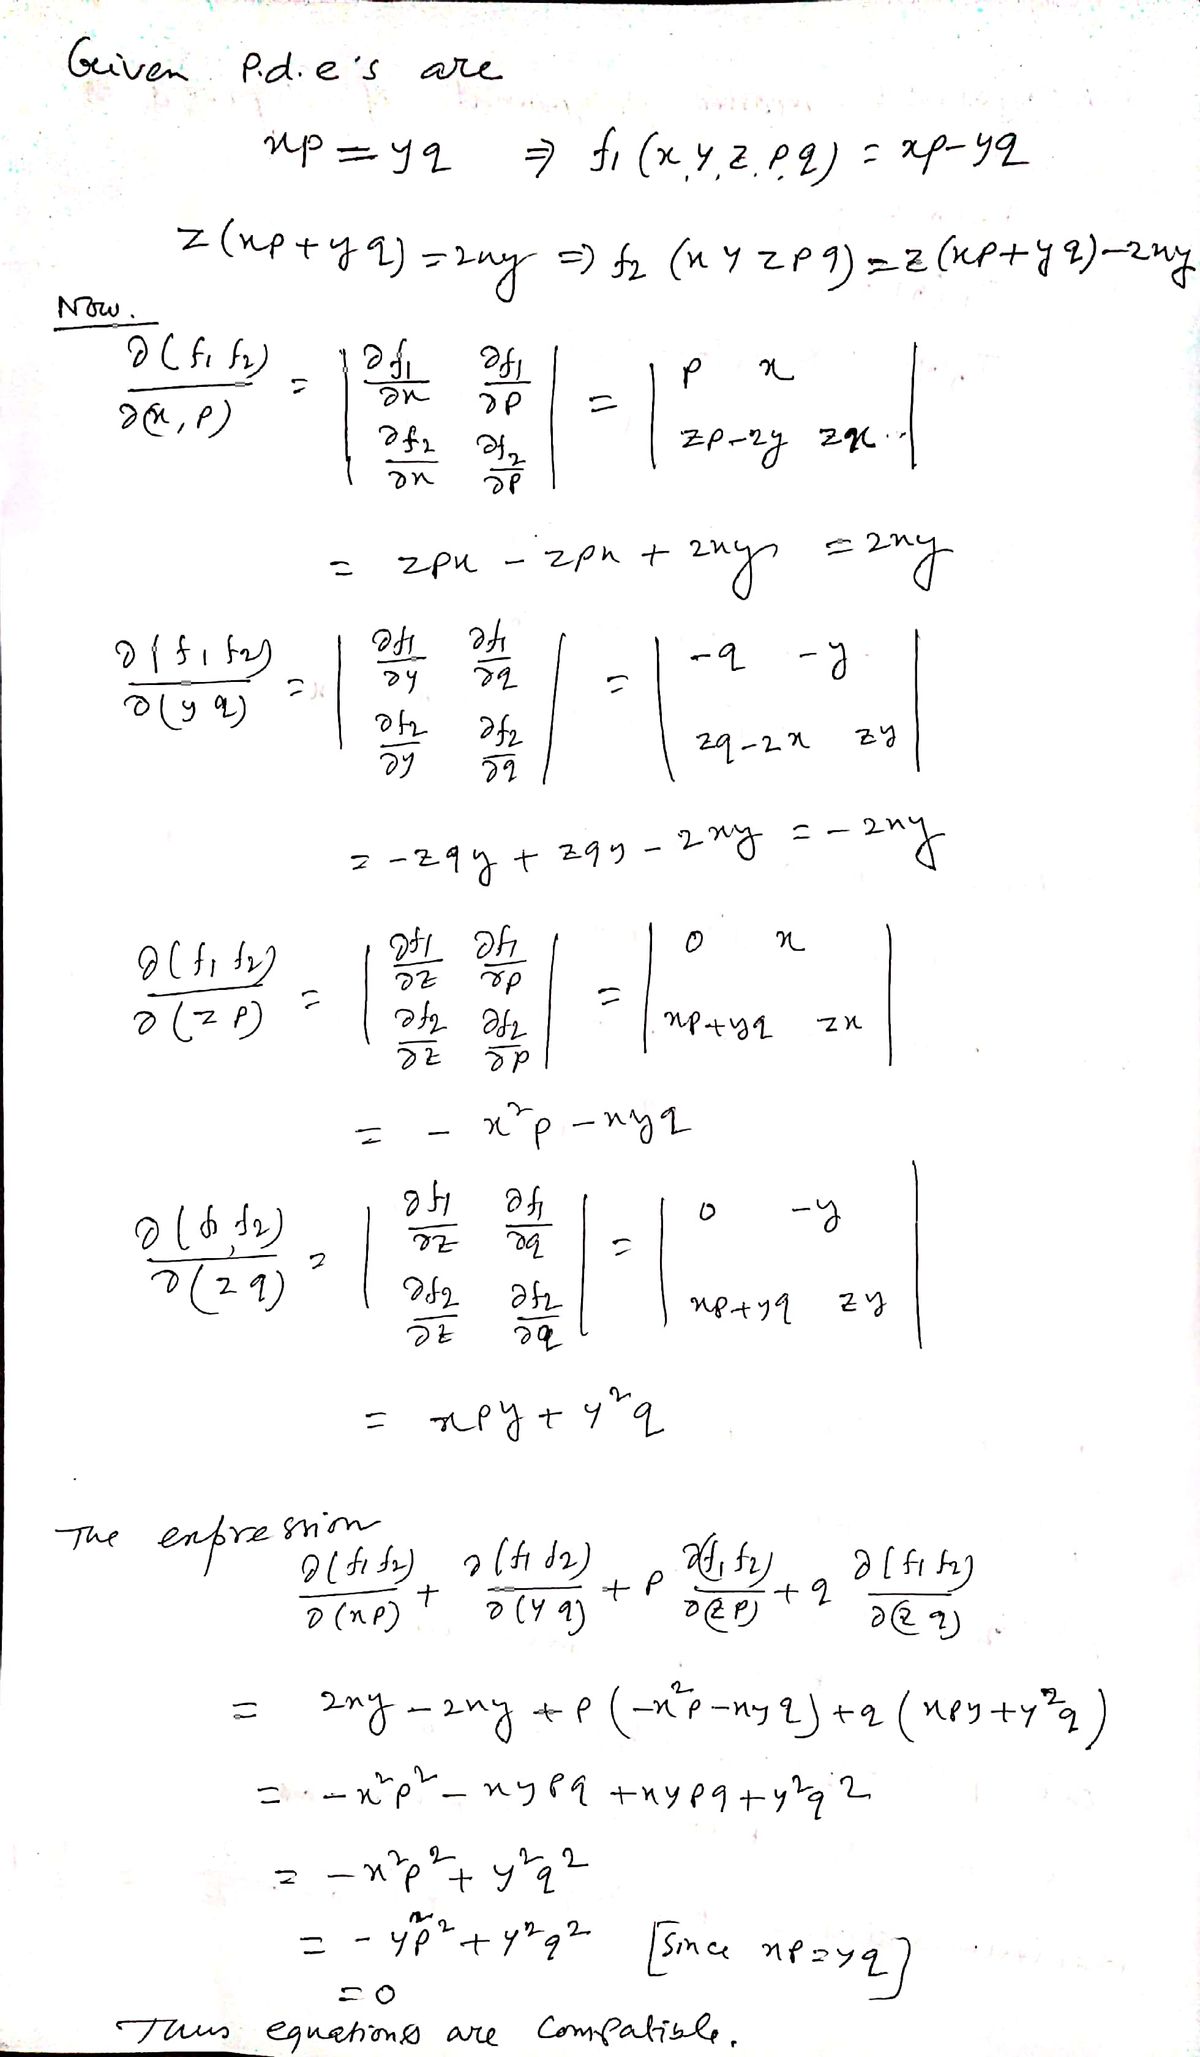 Given P.d.e's are
xp = yq ⇒ f₁ (x, y, z, p, q) = xp - yq
z(xp + yq) = 2xy ⇒ f₂ (x y z p q) = z(xp + yq) - 2xy
Now.
∂(f₁ f₂)/∂(x, p) = | ∂f₁/∂x ∂f₁/∂p ; ∂f₂/∂x ∂f₂/∂p | = | p x ; zp-2y zx |
= zpx - zpx + 2xy = 2xy
∂(f₁ f₂)/∂(y q) = | ∂f₁/∂y ∂f₁/∂q ; ∂f₂/∂y ∂f₂/∂q | = | -q -y ; zq-2x zy |
= -zqy + zqy - 2xy = -2xy
∂(f₁ f₂)/∂(z p) = | ∂f₁/∂z ∂f₁/∂p ; ∂f₂/∂z ∂f₂/∂p | = | 0 x ; xp+yq zx |
= - x²p - xyq
∂(f₁, f₂)/∂(z q) = | ∂f₁/∂z ∂f₁/∂q ; ∂f₂/∂z ∂f₂/∂q | = | 0 -y ; xp+yq zy |
= xpy + y²q
The expression
∂(f₁ f₂)/∂(x p) + ∂(f₁ f₂)/∂(y q) + p ∂(f₁, f₂)/∂(z p) + q ∂(f₁ f₂)/∂(z q)
= 2xy - 2xy + p(-x²p - xyq) + q(xpy + y²q)
= -x²p² - xypq + xypq + y²q²
= -x²p² + y²q²
= - y²p² + y²q² [Since xp = yq]
= 0
Thus equations are Compatible.